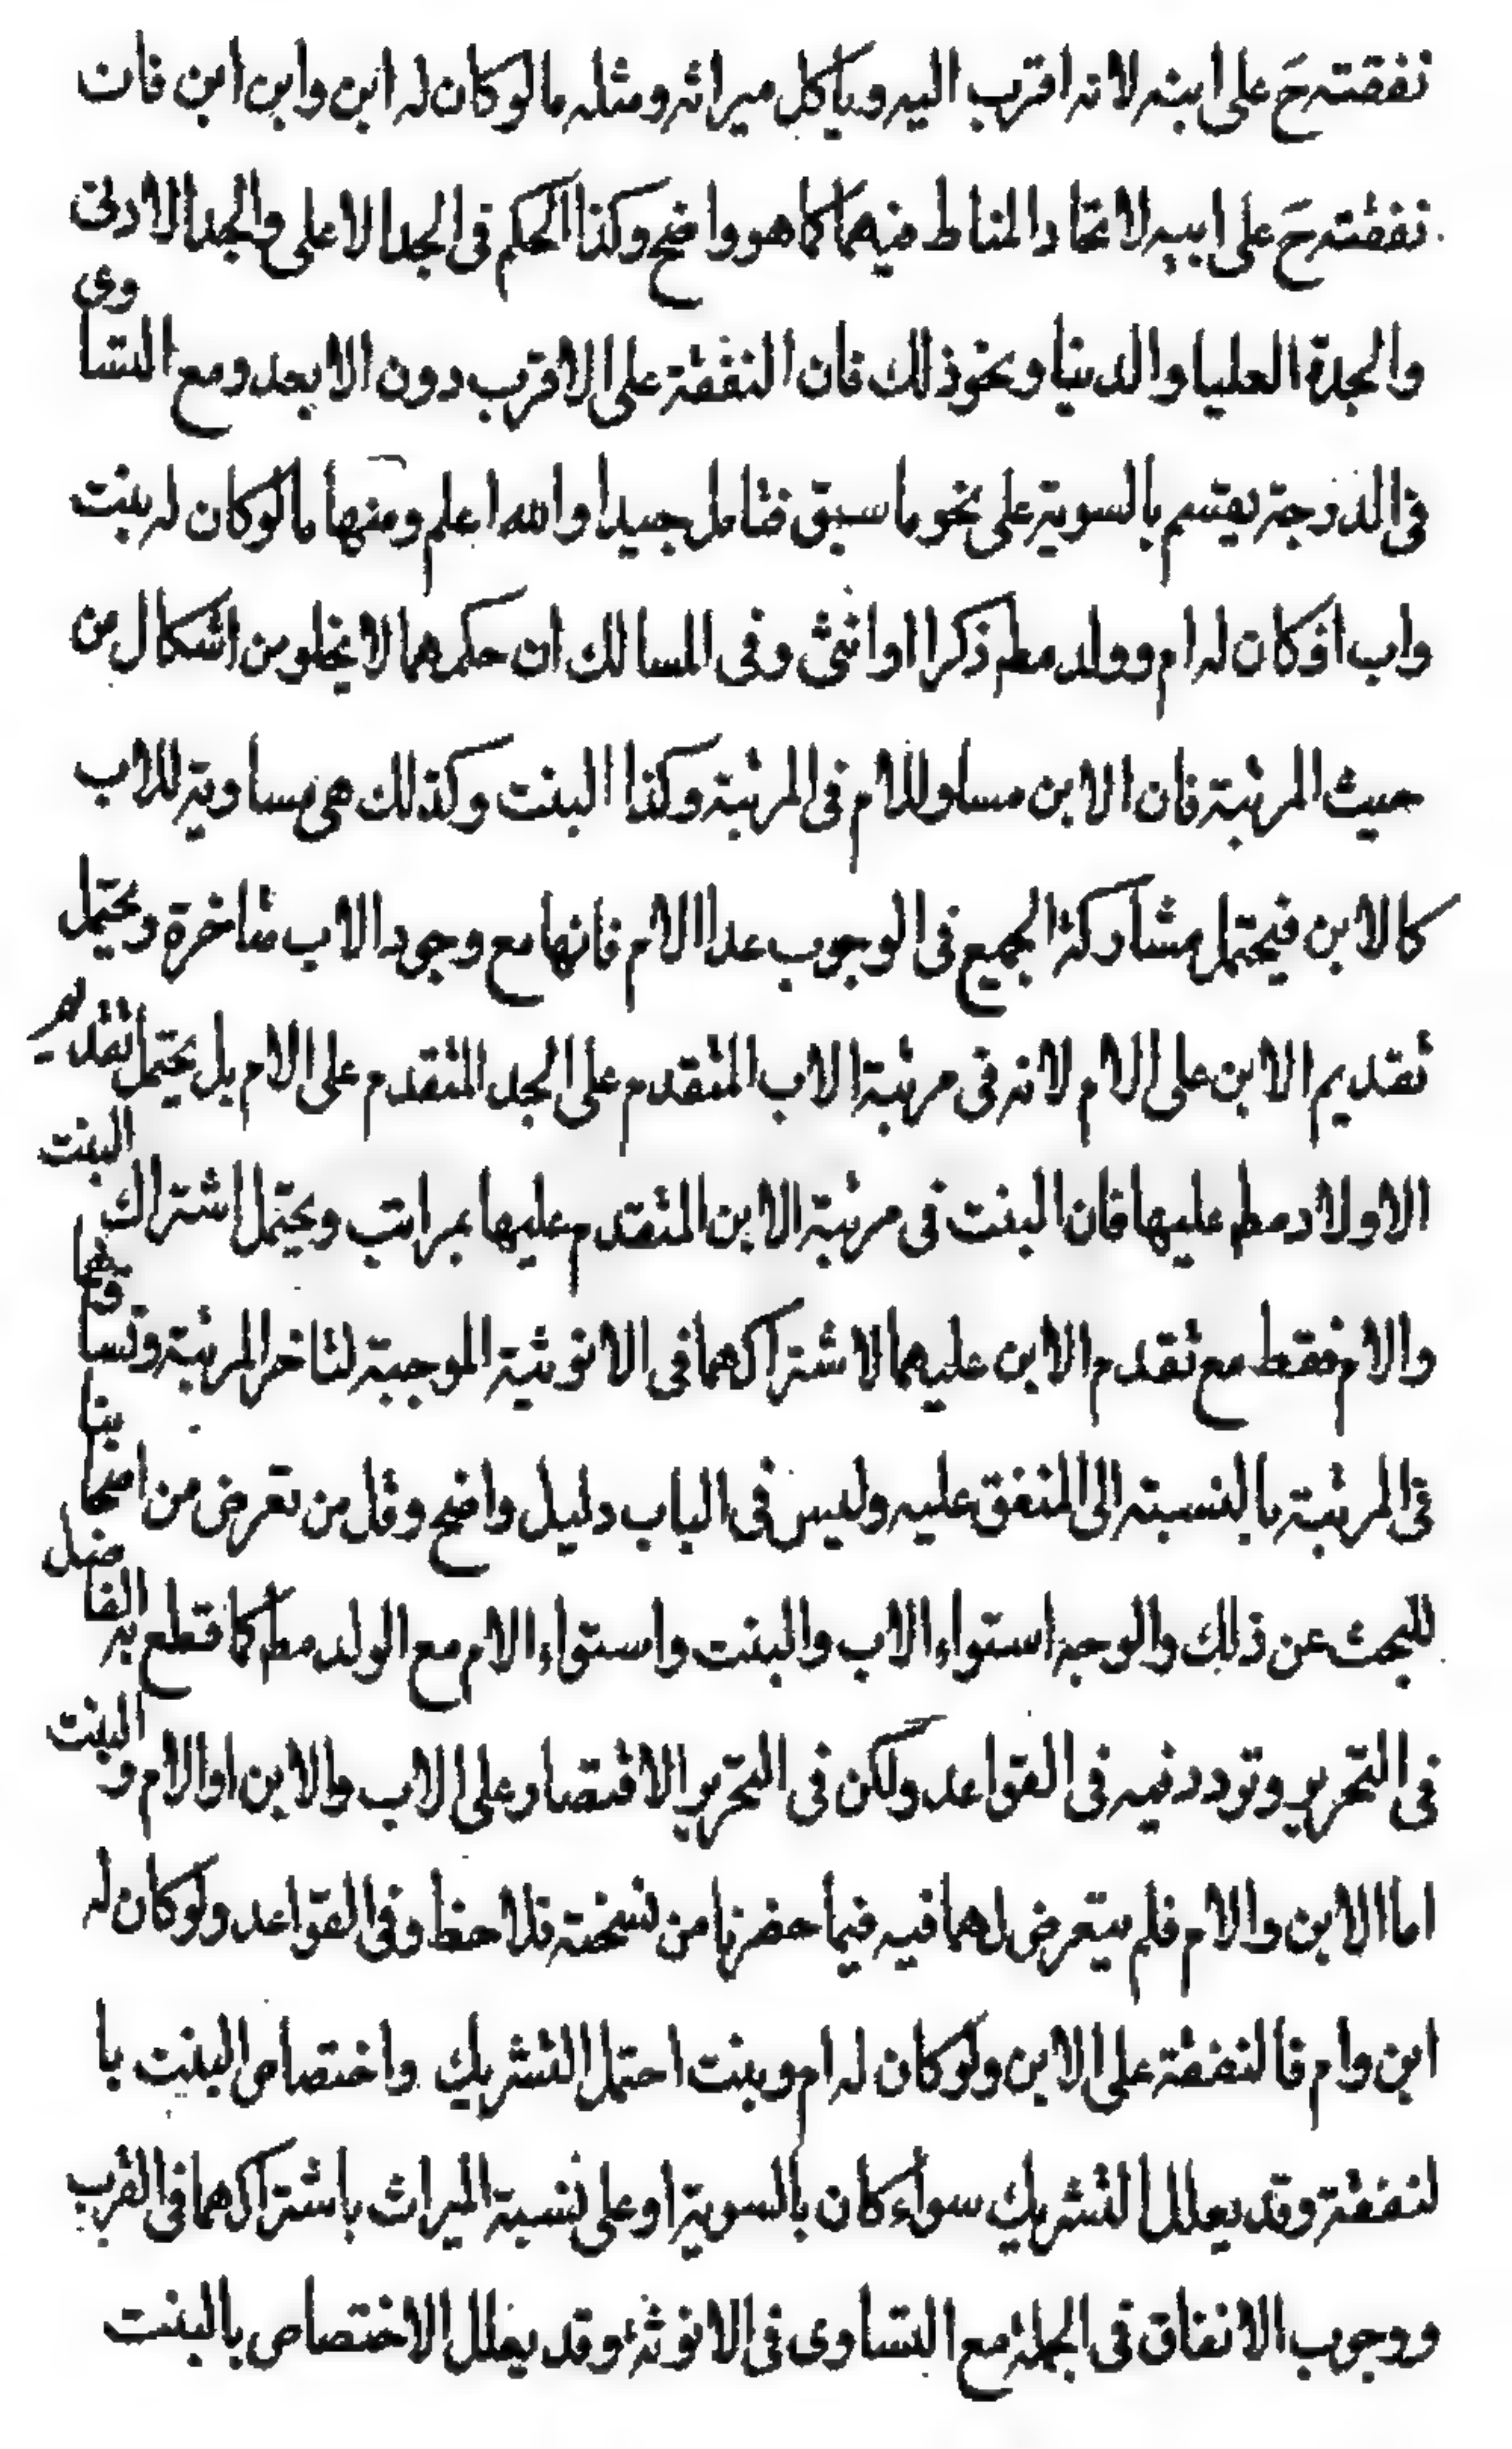 نفقته ح على ابنه لانه اقرب اليه وياكل ميراثه ومثله مالو كان له ابن وابن ابن فان
نفقته ح على ابيه لاتحاد المناط فيهما كما هو واضح وكذا الحكم فى الجد الاعلى والجد الادنى
والجدة العليا والدنيا ونحو ذلك فان النفقة على الاقرب دون الابعد ومع التساوى
فى الدرجة يقسم بالسوية على نحو ما سبق فتامل جيدا والله اعلم ومنها مالو كان له بنت
واب او كان له ام وولد مطم ذكرا او انثى وفى المسالك ان حكمهما لا يخلو من اشكال من
حيث المرتبة فان الابن مساو للام فى المرتبة وكذا البنت وكذلك هى مساوية للاب
كالابن فيحتمل مشاركة الجميع فى الوجوب عدا الام فانها مع وجود الاب متاخرة ويحتمل
تقديم الابن على الام لانه فى مرتبة الاب المتقدم على الجد المتقدم على الام بل يحتمل تقديم
الاولاد مطم عليها فان البنت فى مرتبة الابن المتقدم عليها بمراتب ويحتمل اشتراك البنت
والام فقط مع تقدم الابن عليهما لاشتراكهما فى الانوثية الموجبة لتاخر المرتبة وتساوقهما
فى المرتبة بالنسبة الى المنفق عليه وليس فى الباب دليل واضح وقل من تعرض من اصحابنا
للبحث عن ذلك والوجه استواء الاب والبنت واستواء الام مع الولد مطم كما قطع به الفاضل
فى التحرير وتردد فيه فى القواعد ولكن فى التحرير الاقتصار على الاب والابن او الام والبنت
اما الابن والام فلم يتعرض لهما فيه فيما حضرنا من نسخته فلاحظ وفى القواعد ولو كان له
ابن وام فالنفقة على الابن ولو كان له ام وبنت احتمل التشريك واختصاص البنت با
لنفقة وقد يعلل التشريك سواء كان بالسوية او على نسبة الميراث باشتراكهما فى القرب
ووجوب الانفاق فى الجملة مع التساوى فى الانوثة وقد يعلل الاختصاص بالبنت